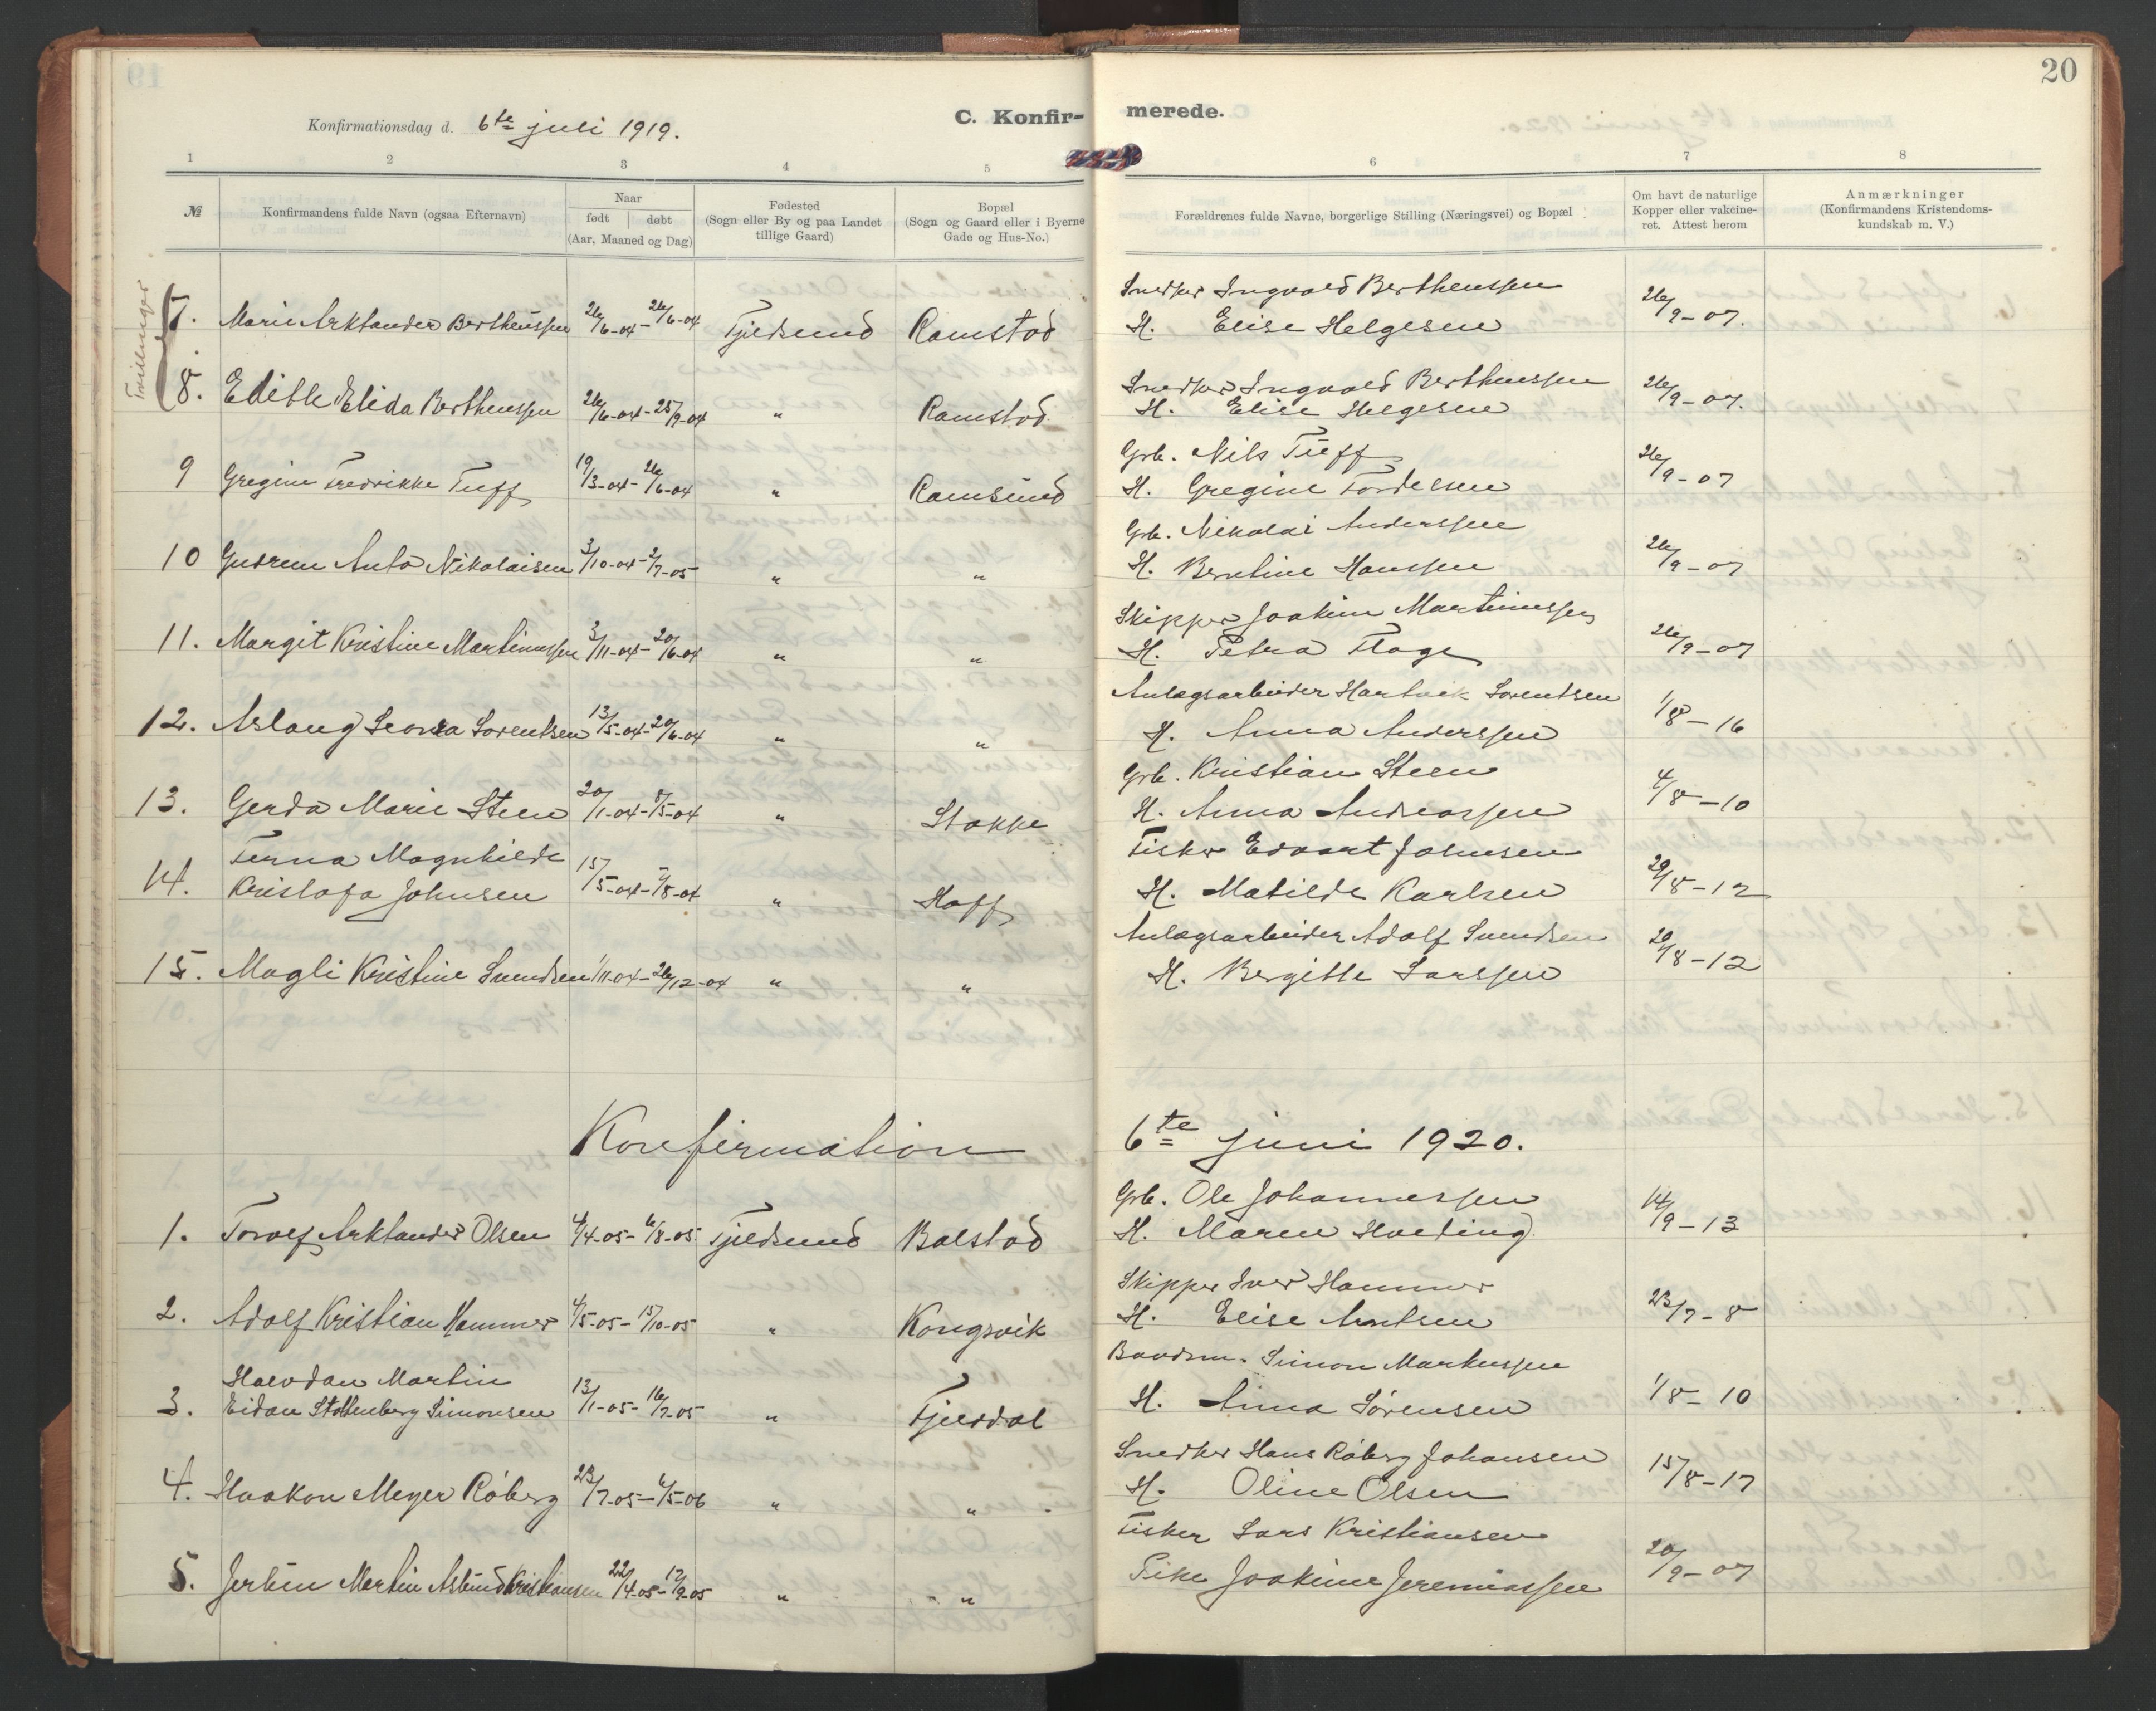 20
Konfirmationsdag d. 6te juli 1919.
C. Konfir-
merede.
1 2 3 4 5 6 7 8
№ Konfirmandens fulde Navn (ogsaa Efternavn)
Naar
født døbt
(Aar, Maaned og Dag)
Fødested
(Sogn eller By og paa Landet
tillige Gaard)
Bopæl
(Sogn og Gaard eller i Byerne
Gade og Hus-No.)
Forældrenes fulde Navne, borgerlige Stilling (Næringsvei) og Bopæl
Om havt de naturlige
Kopper eller vakcine-
ret. Attest herom
Anmærkninger
(Konfirmandens Kristendoms-
kundskab m. V.)
Tvillinger
Snedker Ingvald Berthenssen
7. Marie Arktander Berthenssen 26/6-04 - 26/6-04 Tjeldsund Ramstad H. Elise Helgesen 26/9-07.
Snedker Ingvald Berthenssen
8. Edith Elida Berthenssen 26/6-04 - 25/9-04 " Ramstad H. Elise Helgesen 26/9-07.
Grb. Nils Tuff
9 Gregine Fredrikke Tuff 19/3-04 - 26/6-04 " Ramsund H. Gregine Tordersen 26/9-07
Grb. Nikolai Anderssen
10 Gudrun Anta Nikolaisen 3/10-04 - 2/7-05 " " H. Berntine Hanssen 26/9-07
Skipper Joakim Martinussen
11. Margit Kristine Martinussen 3/11-04 - 20/6-04 " " H. Petra Flage 26/9-07
Anlægsarbeider Hartvik Sorentsen
12. Aslaug Leonra Sorentsen 13/5-04 - 20/6-04 " " H. Anna Anderssen 1/8-16
Grb. Kristian Steen
13. Gerda Marie Steen 20/1-04 - 8/5-04 " Stokke H. Anna Andreassen 4/8-10
Ferna Magnhilde Fisker Edvart Johnsen
14. Kristofa Johnsen 15/5-04 - 7/8-04 " Hoff H. Matilde Karlsen 29/8-12
Anlægsarbeider Adolf Svendsen
15. Magli Kristine Svendsen 1/11-04 - 26/12-04 " " H. Bergitte Larssen 29/8-12
Konfirmation 6te juni 1920.
Grb. Ole Johannessen
1. Torolf Arktander Olsen 4/4-05 - 6/8-05 Tjeldsund Balstad H. Maren Hveding 14/9-13
Skipper Iver Hammer
2. Adolf Kristian Hammer 4/5-05 - 15/10-05 " Kongsvik H. Elise Arntsen 23/7-8
Halvdan Martin Baadsm. Simon Markussen
3. Eidan Stoltenberg Simonsen 13/1-05 - 16/7-05 " Fjeldal H. Anna Sørensen 1/8-10
Snedker Hans Råberg Johansen
4. Haakon Meyer Råberg 23/7-05 - 6/5-06 " " H. Oline Olsen 15/8-17
Fisker Lars Kristiansen
5. Martin Kristiansen 22/4-05 - 17/9-05 " " Pike Joakime Jeremiassen 20/9-07